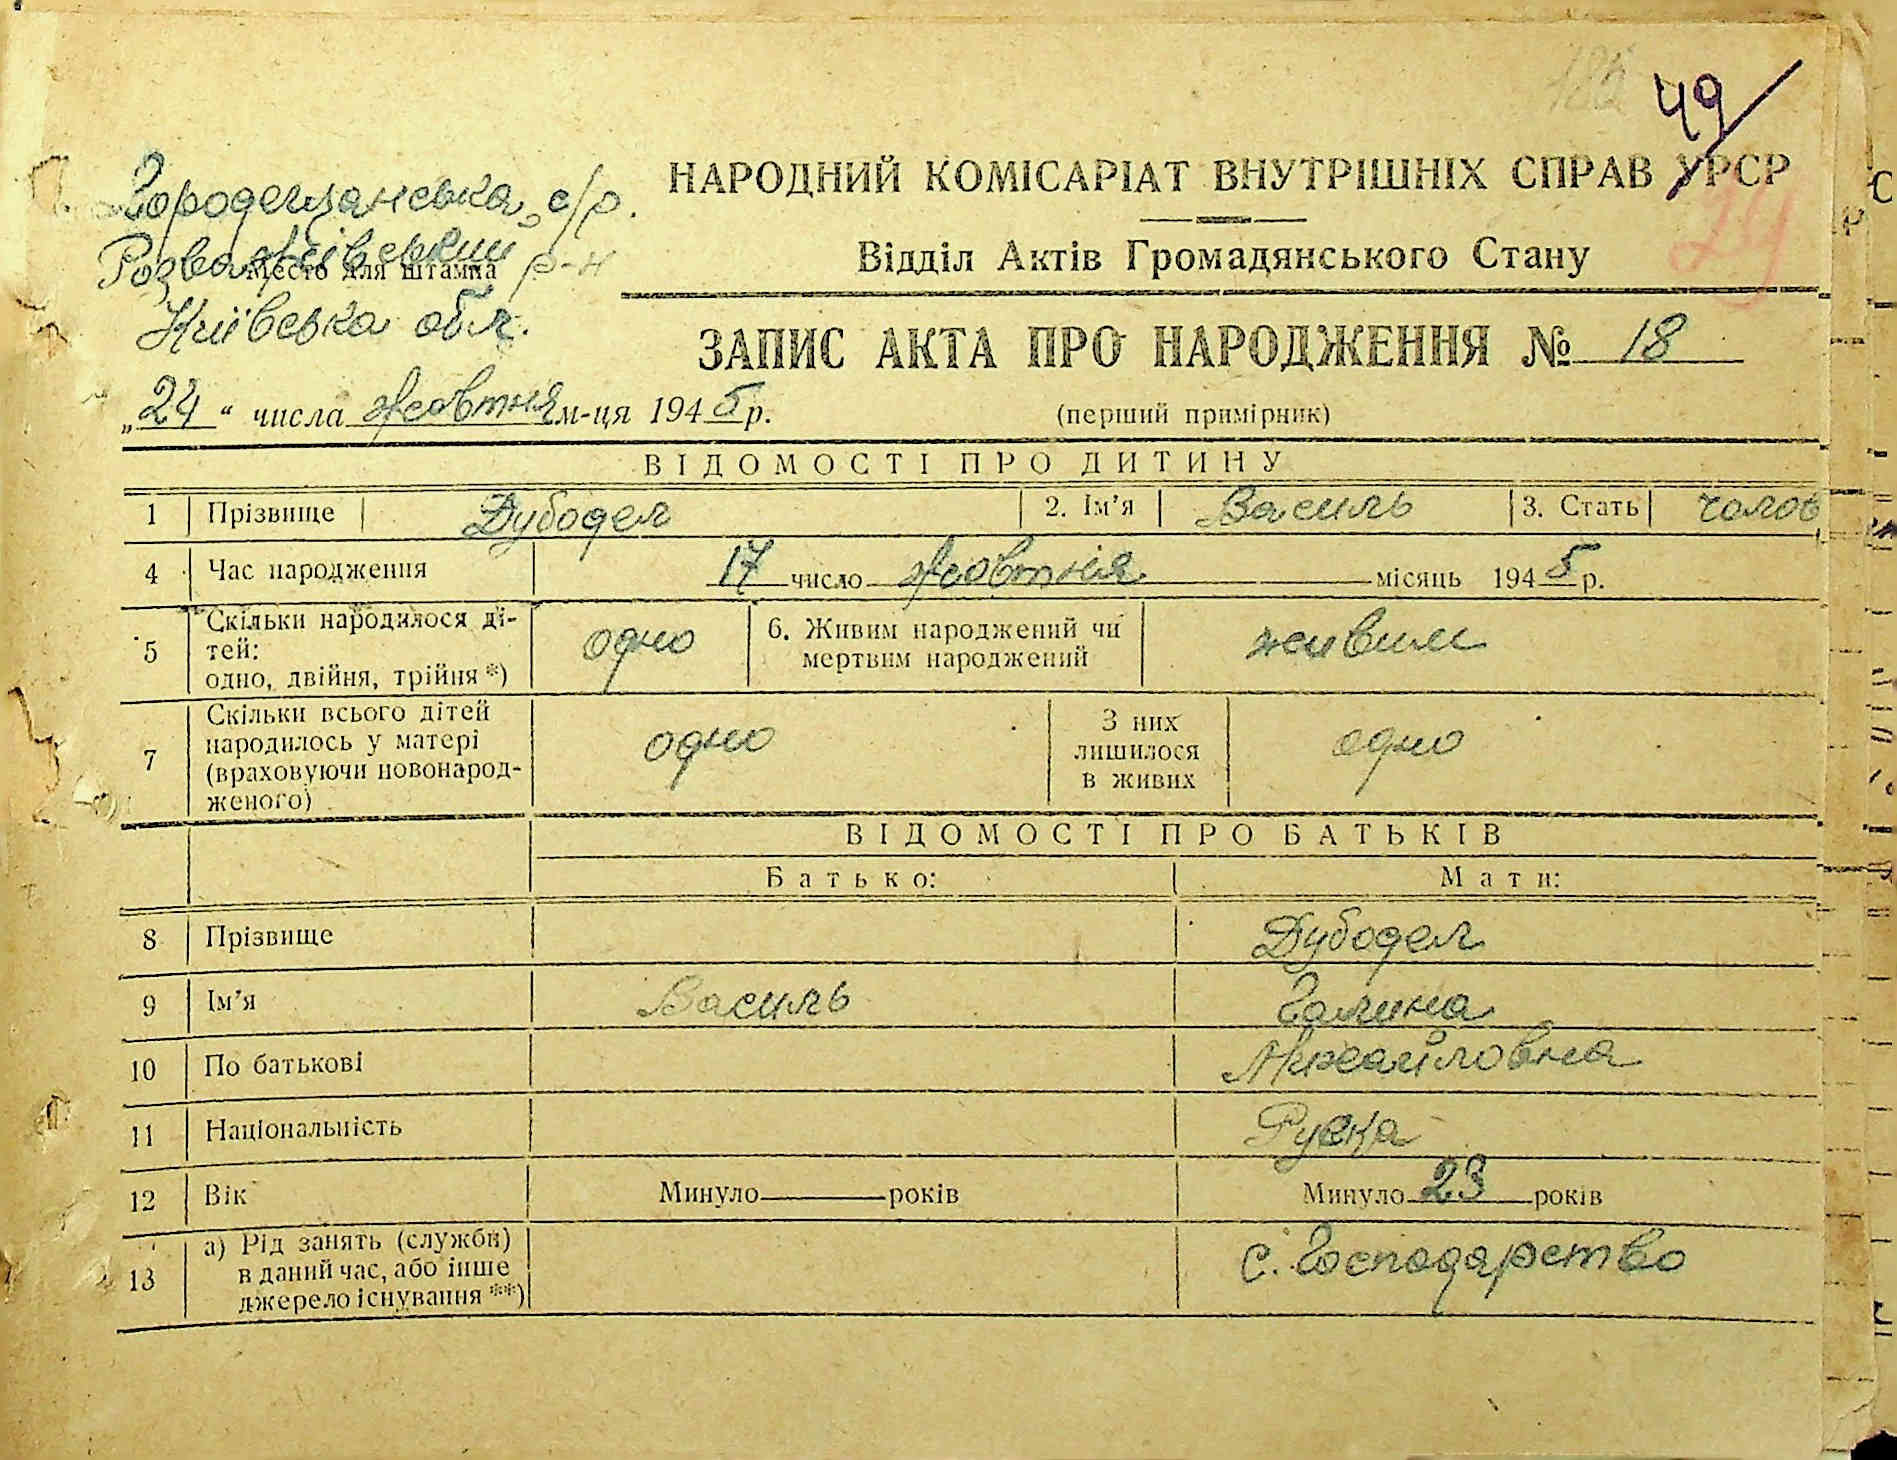 49
НАРОДНИЙ КОМІСАРІАТ ВНУТРІШНІХ СПРАВ УРСР
с/р.
Розважівський р-н
Место для штампа
Київська обл.
Відділ Актів Громадянського Стану
ЗАПИС АКТА ПРО НАРОДЖЕННЯ № 18
„24“ числа жовтня м-ця 1945 р.
(перший примірник)
ВІДОМОСТІ ПРО ДИТИНУ
1 Прізвище Дубодел 2. Ім’я Василь 3. Стать чолов
4 Час народження 17 число жовтня місяць 1945 р.
5 Скільки народилося ді-
тей:
одно, двійня, трійня *)
одно
6. Живим народжений чи
мертвим народжений
живим
7 Скільки всього дітей
народилось у матері
(враховуючи новонарод-
женого)
одно
З них
лишилося
в живих
одно
ВІДОМОСТІ ПРО БАТЬКІВ
Батько: Мати:
8 Прізвище Дубодел
9 Ім’я Василь Галина
10 По батькові Михайловна
11 Національність Руска
12 Вік Минуло років Минуло 23 років
13 а) Рід занять (служби)
в даний час, або інше
джерело існування **)
С. Господарство